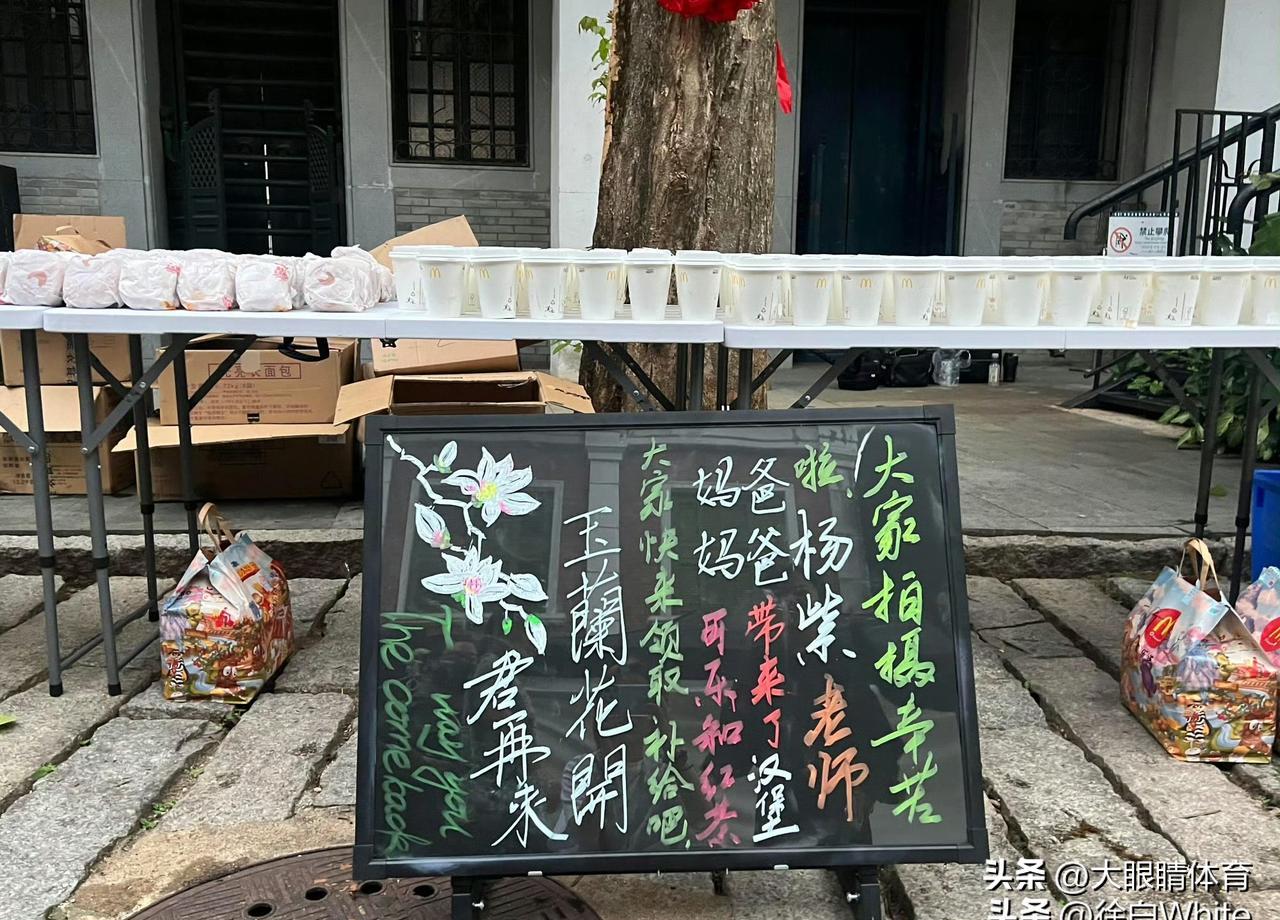 大家拍摄辛苦
啦，杨柴老师
爸爸带来了汉堡
妈妈可乐和红茶
大家快来领取补给吧
玉蘭花開
君再来
The way you
come back
禁止攀爬
头条 @大眼睛体育
头条 @徐白White